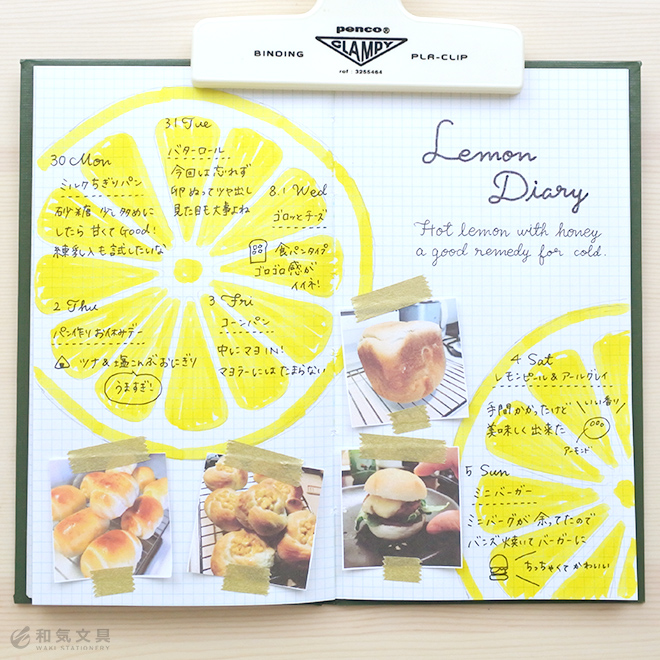 penco®
BINDING CLAMPY PLA-CLIP
ref : 3255464
30 Mon
ミルクちぎりパン
砂糖 少し多めに
したら 甘くてGood!
練乳入も試したいな
31 Tue
バターロール
今回は忘れず
卵ぬってツヤ出し
見た目も大事よね
8.1 Wed
ゴロッとチーズ
食パンタイプ
ゴロゴロ感が
イイネ!
2 Thu
パン作りお休みデー
ツナ&塩こんぶおにぎり
うますぎ!
3 Fri
コーンパン
中にマヨIN!
マヨラーにはたまらない
Lemon
Diary
Hot lemon with honey
a good remedy for cold.
4 Sat
レモンピール&アールグレイ
手間かかったけど
美味しく出来た
いい香り
アーモンド
5 Sun
ミニバーガー
ミニバーグが余ってたので
バンズ焼いてバーガーに
ちっちゃくてかわいい
和気文具
WAKI STATIONERY